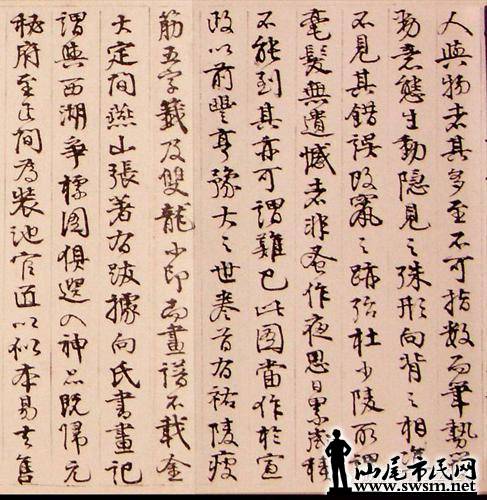 人與物者其多至不可指數而筆勢
勁意態生動隱見之殊形向背之相
不見其錯誤改竄之跡殆杜少陵所謂
毫髮無遺憾者非蚤作夜思日累歲積
不能到其亦可謂難已此圖當作於宣
政以前豐亨豫大之世卷首有祐陵瘦
筋五字籤及雙龍小印而畫譜不載金
大定間燕山張著有跋據向氏書畫記
謂與西湖爭標圖俱選入神品既歸元
秘府至正間為裝池官匠以似本易去售
汕尾市民网
www.swsm.net